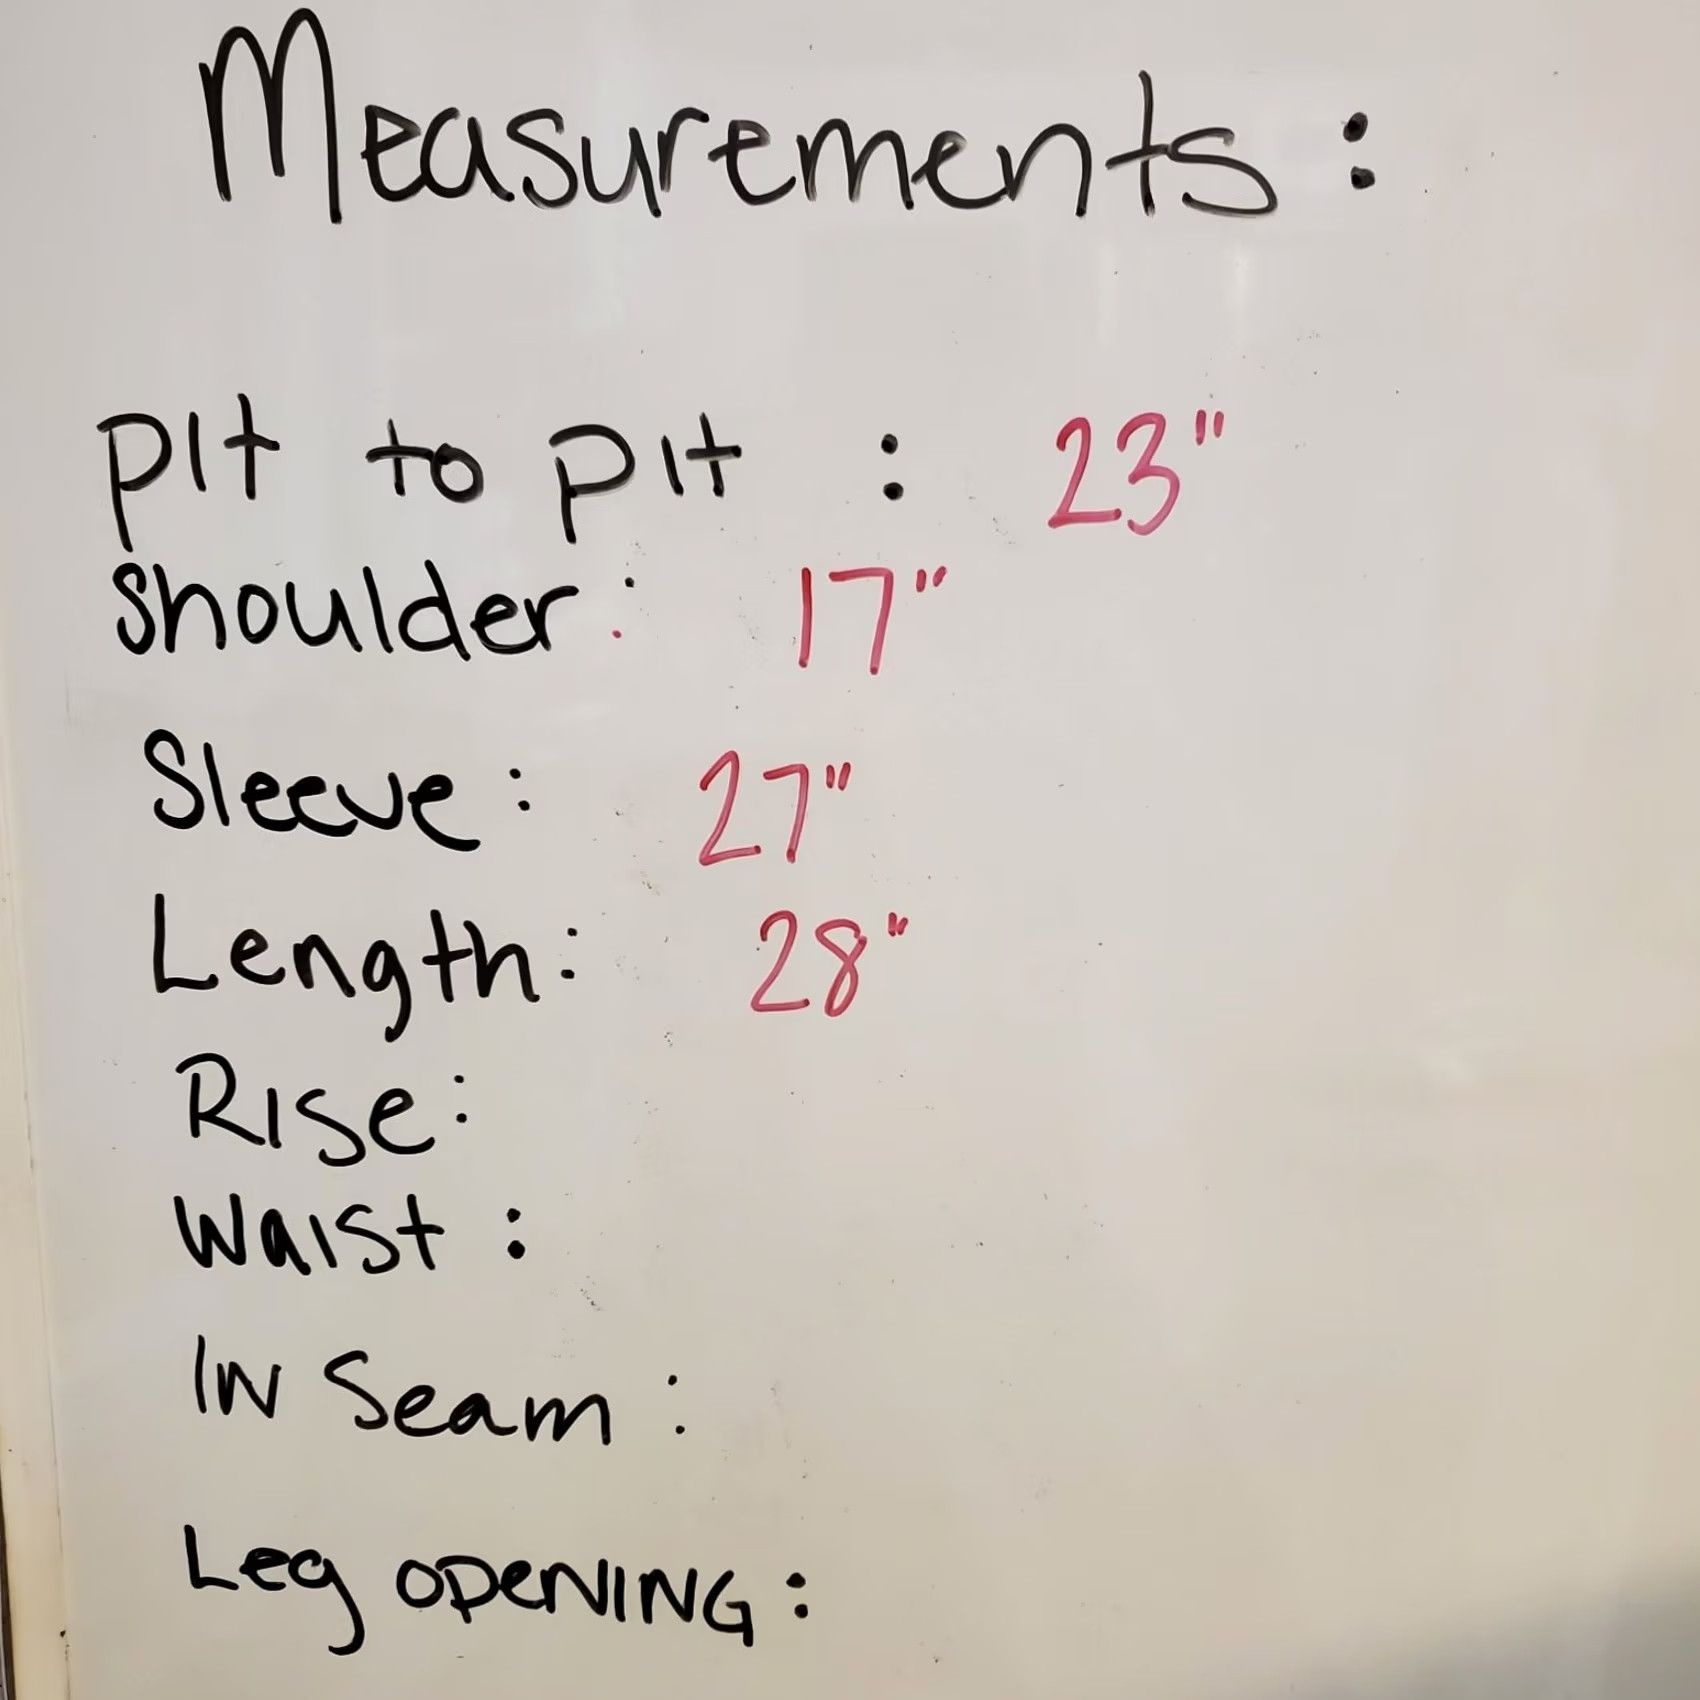 Measurements:
pit to pit : 23"
Shoulder: 17"
Sleeve: 27"
Length: 28"
Rise:
Waist :
IN Seam :
Leg OPeNING: